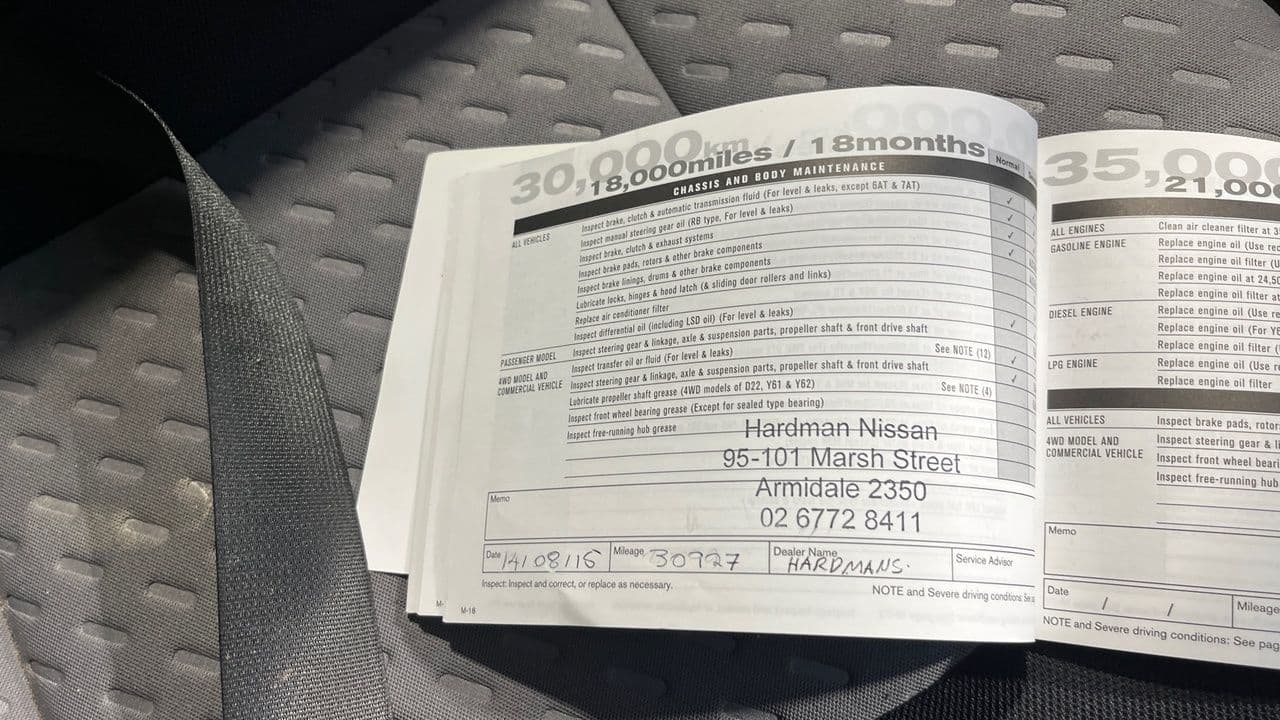 30,000km
18,000miles / 18months
CHASSIS AND BODY MAINTENANCE
Normal
ALL VEHICLES
Inspect brake, clutch & automatic transmission fluid (For level & leaks, except 6AT & 7AT)
Inspect manual steering gear oil (RB type, For level & leaks)
Inspect brake, clutch & exhaust systems
Inspect brake pads, rotors & other brake components
Inspect brake linings, drums & other brake components
Lubricate locks, hinges & hood latch (& sliding door rollers and links)
Replace air conditioner filter
Inspect differential oil (including LSD oil) (For level & leaks)
PASSENGER MODEL
Inspect steering gear & linkage, axle & suspension parts, propeller shaft & front drive shaft
4WD MODEL AND
COMMERCIAL VEHICLE
Inspect transfer oil or fluid (For level & leaks)
See NOTE (12)
Inspect steering gear & linkage, axle & suspension parts, propeller shaft & front drive shaft
Lubricate propeller shaft grease (4WD models of D22, Y61 & Y62)
See NOTE (4)
Inspect front wheel bearing grease (Except for sealed type bearing)
Inspect free-running hub grease
Hardman Nissan
95-101 Marsh Street
Armidale 2350
02 6772 8411
Memo
Date 14/08/15
Mileage 30927
Dealer Name HARDMANS.
Service Advisor
Inspect: Inspect and correct, or replace as necessary.
NOTE and Severe driving conditions:
M-
M-16
35,000
21,000
ALL ENGINES
Clean air cleaner filter at
GASOLINE ENGINE
Replace engine oil (Use rec
Replace engine oil filter (U
Replace engine oil at 24,50
Replace engine oil filter at
DIESEL ENGINE
Replace engine oil (Use re
Replace engine oil (For Y
Replace engine oil filter (
LPG ENGINE
Replace engine oil (Use re
Replace engine oil filter
ALL VEHICLES
Inspect brake pads, rotor
4WD MODEL AND
COMMERCIAL VEHICLE
Inspect steering gear & li
Inspect front wheel beari
Inspect free-running hub
Memo
Date / /
Mileage
NOTE and Severe driving conditions: See pag